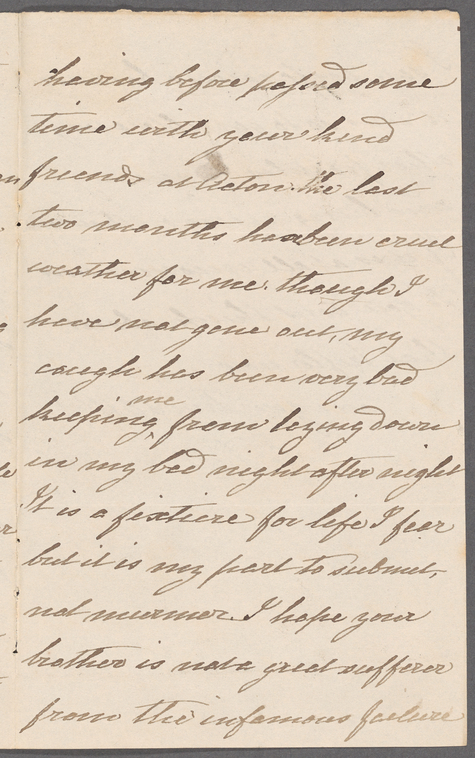 having before passed some
time with your kind
friends at Acton. The last
two months has been cruel
weather for me. though I
have not gone out, my
cough has been very bad
keeping me from lying down
in my bed night after night
It is a fixture for life I fear
but it is my part to submit,
not murmer. I hope your
brother is not a great sufferer
from the infamous failure